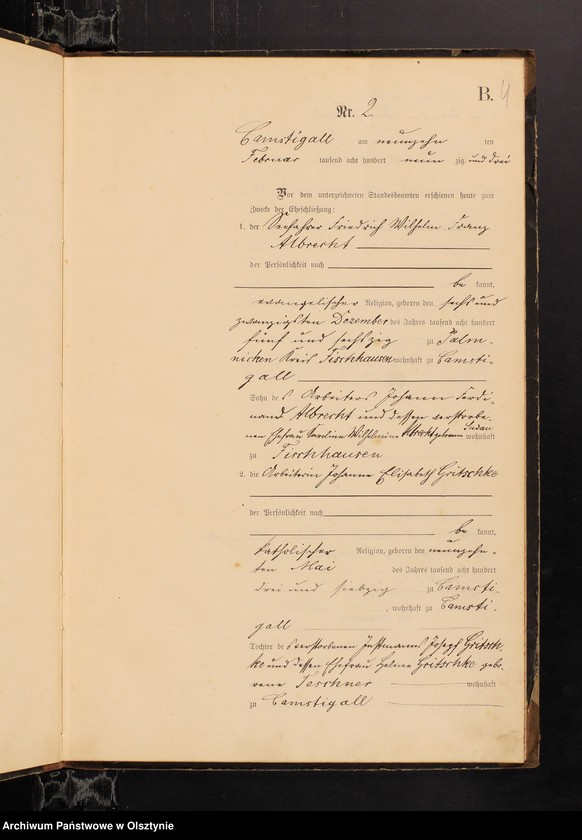 B. 4
Nr. 2
Camstigall am neunzehn ten
Februar tausend acht hundert neun zig und drei
Vor dem unterzeichneten Standesbeamten erschienen heute zum
Zwecke der Eheschließung:
1. der Seefahrer Friedrich Wilhelm Franz
Albrecht
der Persönlichkeit nach
be kannt,
evangelischer Religion, geboren den sechs und
zwanzigsten Dezember des Jahres tausend acht hundert
fünf und sechszig zu Palm-
nicken Kreis Fischhausen wohnhaft zu Camsti-
gall
Sohn des Arbeiters Johann Ferdi-
nand Albrecht und dessen verstorbe-
nen Ehefrau Karoline Wilhelmine Albrecht geborene Sudau wohnhaft
zu Fischhausen
2. die Arbeiterin Johanne Elisabeth Gritschke
der Persönlichkeit nach
be kannt,
katholischer Religion, geboren den neunzehn-
ten Mai des Jahres tausend acht hundert
drei und siebzig zu Camsti-
gall, wohnhaft zu Camsti-
gall
Tochter des verstorbenen Instmanns Josef Gritsch-
ke und dessen Ehefrau Helene Gritschke gebo-
rene Teschner wohnhaft
zu Camstigall
Archiwum Państwowe w Olsztynie